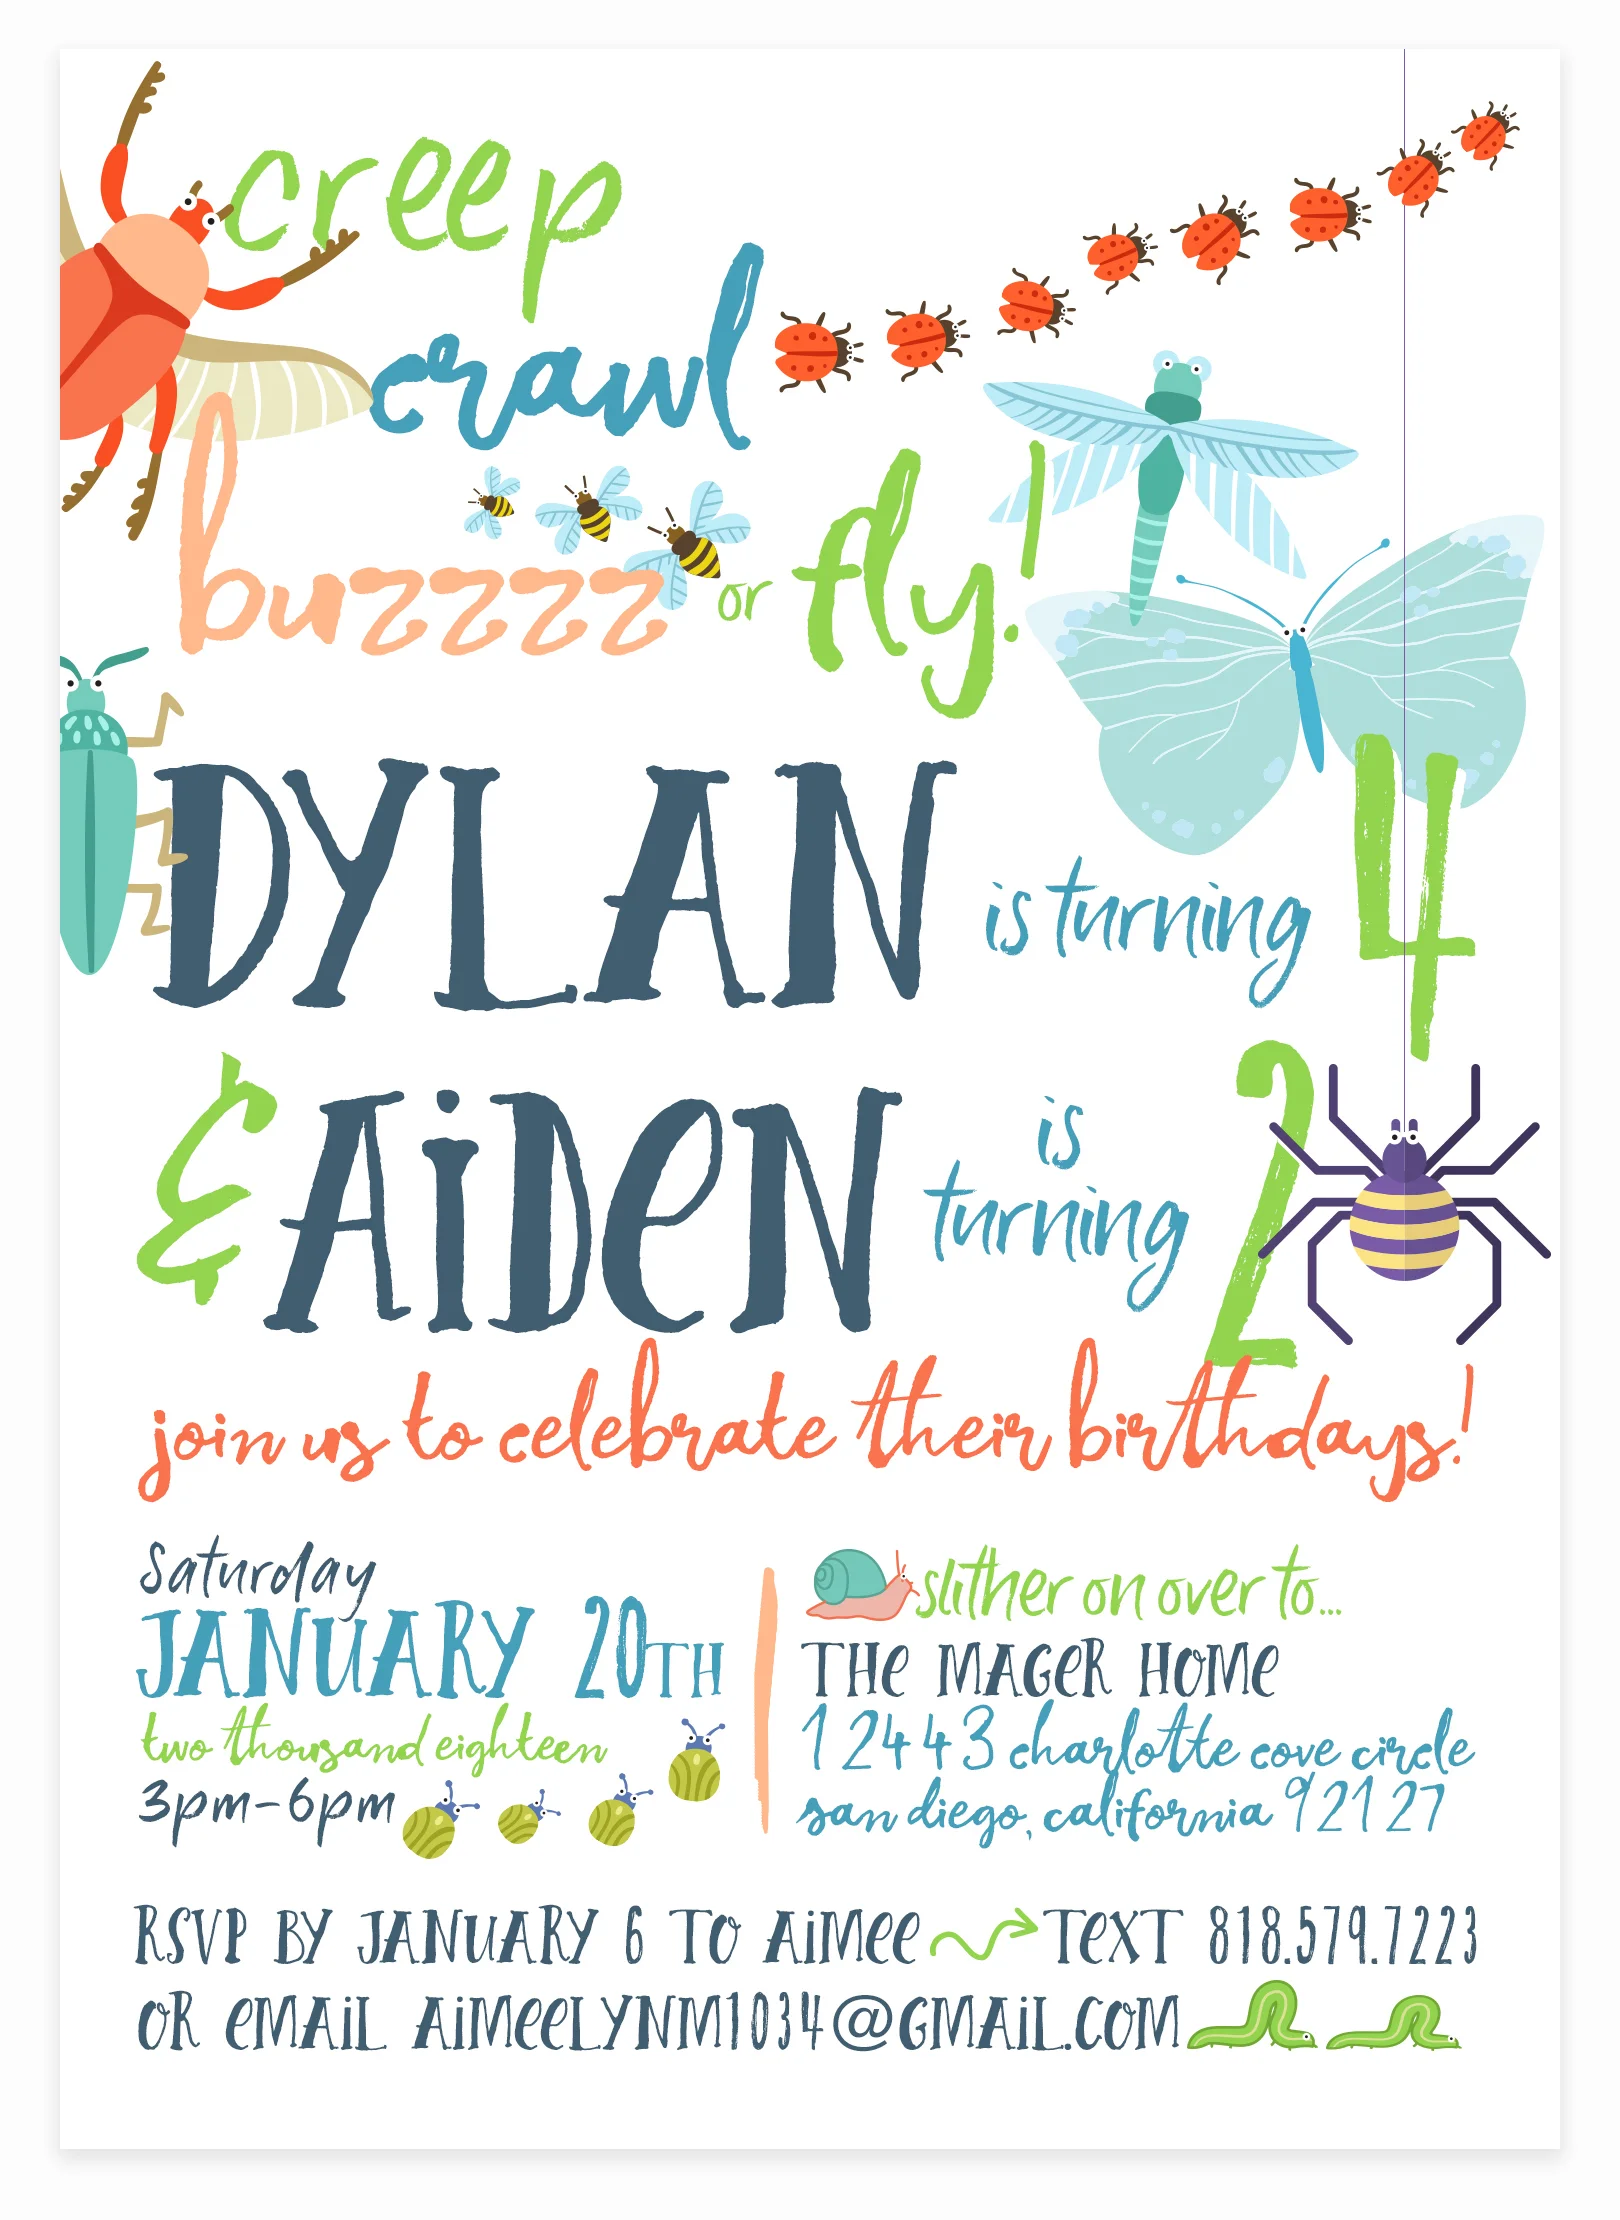 creep
crawl
buzzzz or fly!
DYLAN is turning 4
& AiDeN is turning 2
join us to celebrate their birthdays!
Saturday
JANUARY 20TH
two thousand eighteen
3pm-6pm
slither on over to...
THe MAGeR HOMe
12443 charlotte cove circle
san diego, california 92127
RSVP BY JANUARY 6 TO AiMee TeXT 818.579.7223
OR eMAiL AiMeeLYNM1034@GMAiL.COM